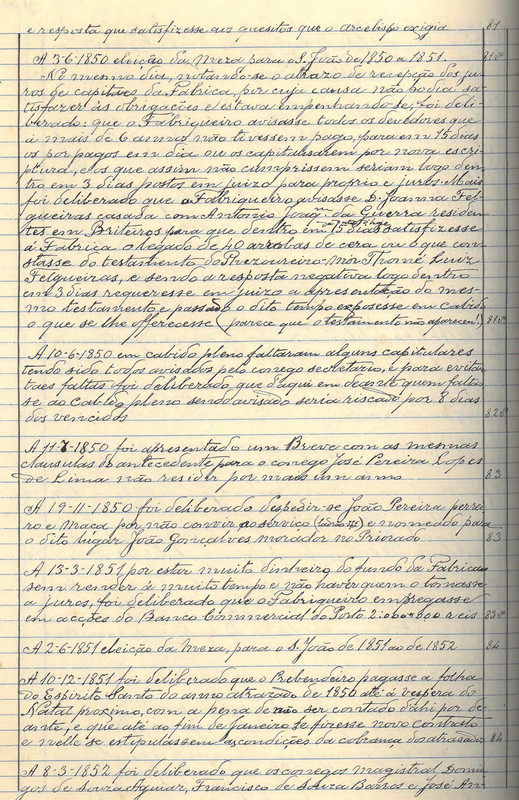 e resposta que satisfizesse aos quesitos que o arcebispo exigia 81
A 3-6-1850 eleição da Meza para o S. João de 1850 a 1851. 81vº
No mesmo dia, notando-se o atrazo de recepção dos ju-
ros de capitaes da Fabrica, por cuja causa não podia sa-
tisfazer ás obrigações e estava empenhando-se, foi deli-
berado: que o Fabriqueiro avisasse todos os devedores que
á mais de 6 annos não tivessem pago, para em 15 dias
os pôr pagos em dia ou os capitalisarem por nova escri-
ptura, e os que assim não cumprissem seriam logo den-
tro em 3 dias postos em juizo para proprio e juros. Mais
foi deliberado que o Fabriqueiro avisasse D. Joanna Fel-
gueiras casada com Antonio Joaqm da Guerra residen-
tes em Briteiros para que dentro em 15 dias satisfizesse
á Fabrica o legado de 40 arrobas de cera ou o que con-
stasse do testamento do Thezoureiro-Mór Thomé Luiz
Felgueiras, e sendo a resposta negativa logo dentro
em 3 dias requeresse em juizo a apresentação do mes-
mo testamento e passado o dito tempo expozesse em cabido
o que se lhe offerecesse (parece que o testamento não appareceu!) 81vº
A 10-6-1850 em cabido pleno faltaram alguns capitulares
tendo sido todos avisados pelo conego secretario, e para evitar
taes faltas foi deliberado que d'aqui em deante quem faltas-
se ao cabido pleno sendo avisado seria riscado por 8 dias
dos vencidos 82vº
A 11-7-1850 foi apresentado um Breve com as mesmas
clausulas do antecedente para o conego José Pereira Lopes
de Lima não residir por mais um anno 83
A 19-11-1850 foi deliberado despedir-se João Pereira
e Maca por não convir ao serviço e nomeado para
o dito lugar João Gonçalves morador no Priorado 83
A 13-3-1851 por estar muito dinheiro do fundo da Fabrica
sem render á muito tempo e não haver quem o tomasse
a juros, foi deliberado que o Fabriqueiro empregasse
em acções do Banco Commercial do Porto 2:000$000 reis 83vº
A 2-6-1851 eleição da Meza, para o S. João de 1851 ao de 1852 84
A 10-12-1851 foi deliberado que o Prebendeiro pagasse a folha
do Espirito Santo do anno atrazado de 1850 até á vespera do
Natal proximo, com a pena de não ser contado d'ahi por de-
ante, e que até ao fim de Janeiro se fizesse novo contrato
e nelle se estipulassem as condições da cobrança dos atrasados 84
A 8-3-1852 foi deliberado que os conegos magistral Domin-
gos de Souza Aguiar, Francisco de Souza Barros e José An-